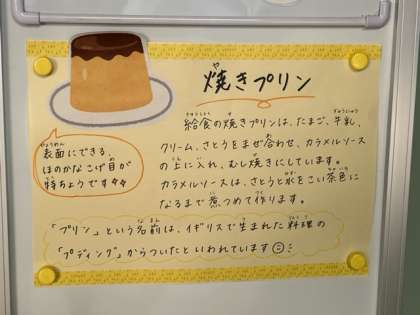 焼きプリン
給食の焼きプリンは、たまご、牛乳、
クリーム、さとうをまぜ合わせ、カラメルソース
の上に入れ、むし焼きにしています。
カラメルソースは、さとうと水をこい茶色に
なるまで煮つめて作ります。
表面にできる、
ほのかなこげ目が
特ちょうです
「プリン」という名前は、イギリスで生まれた料理の
「プディング」からついたといわれています